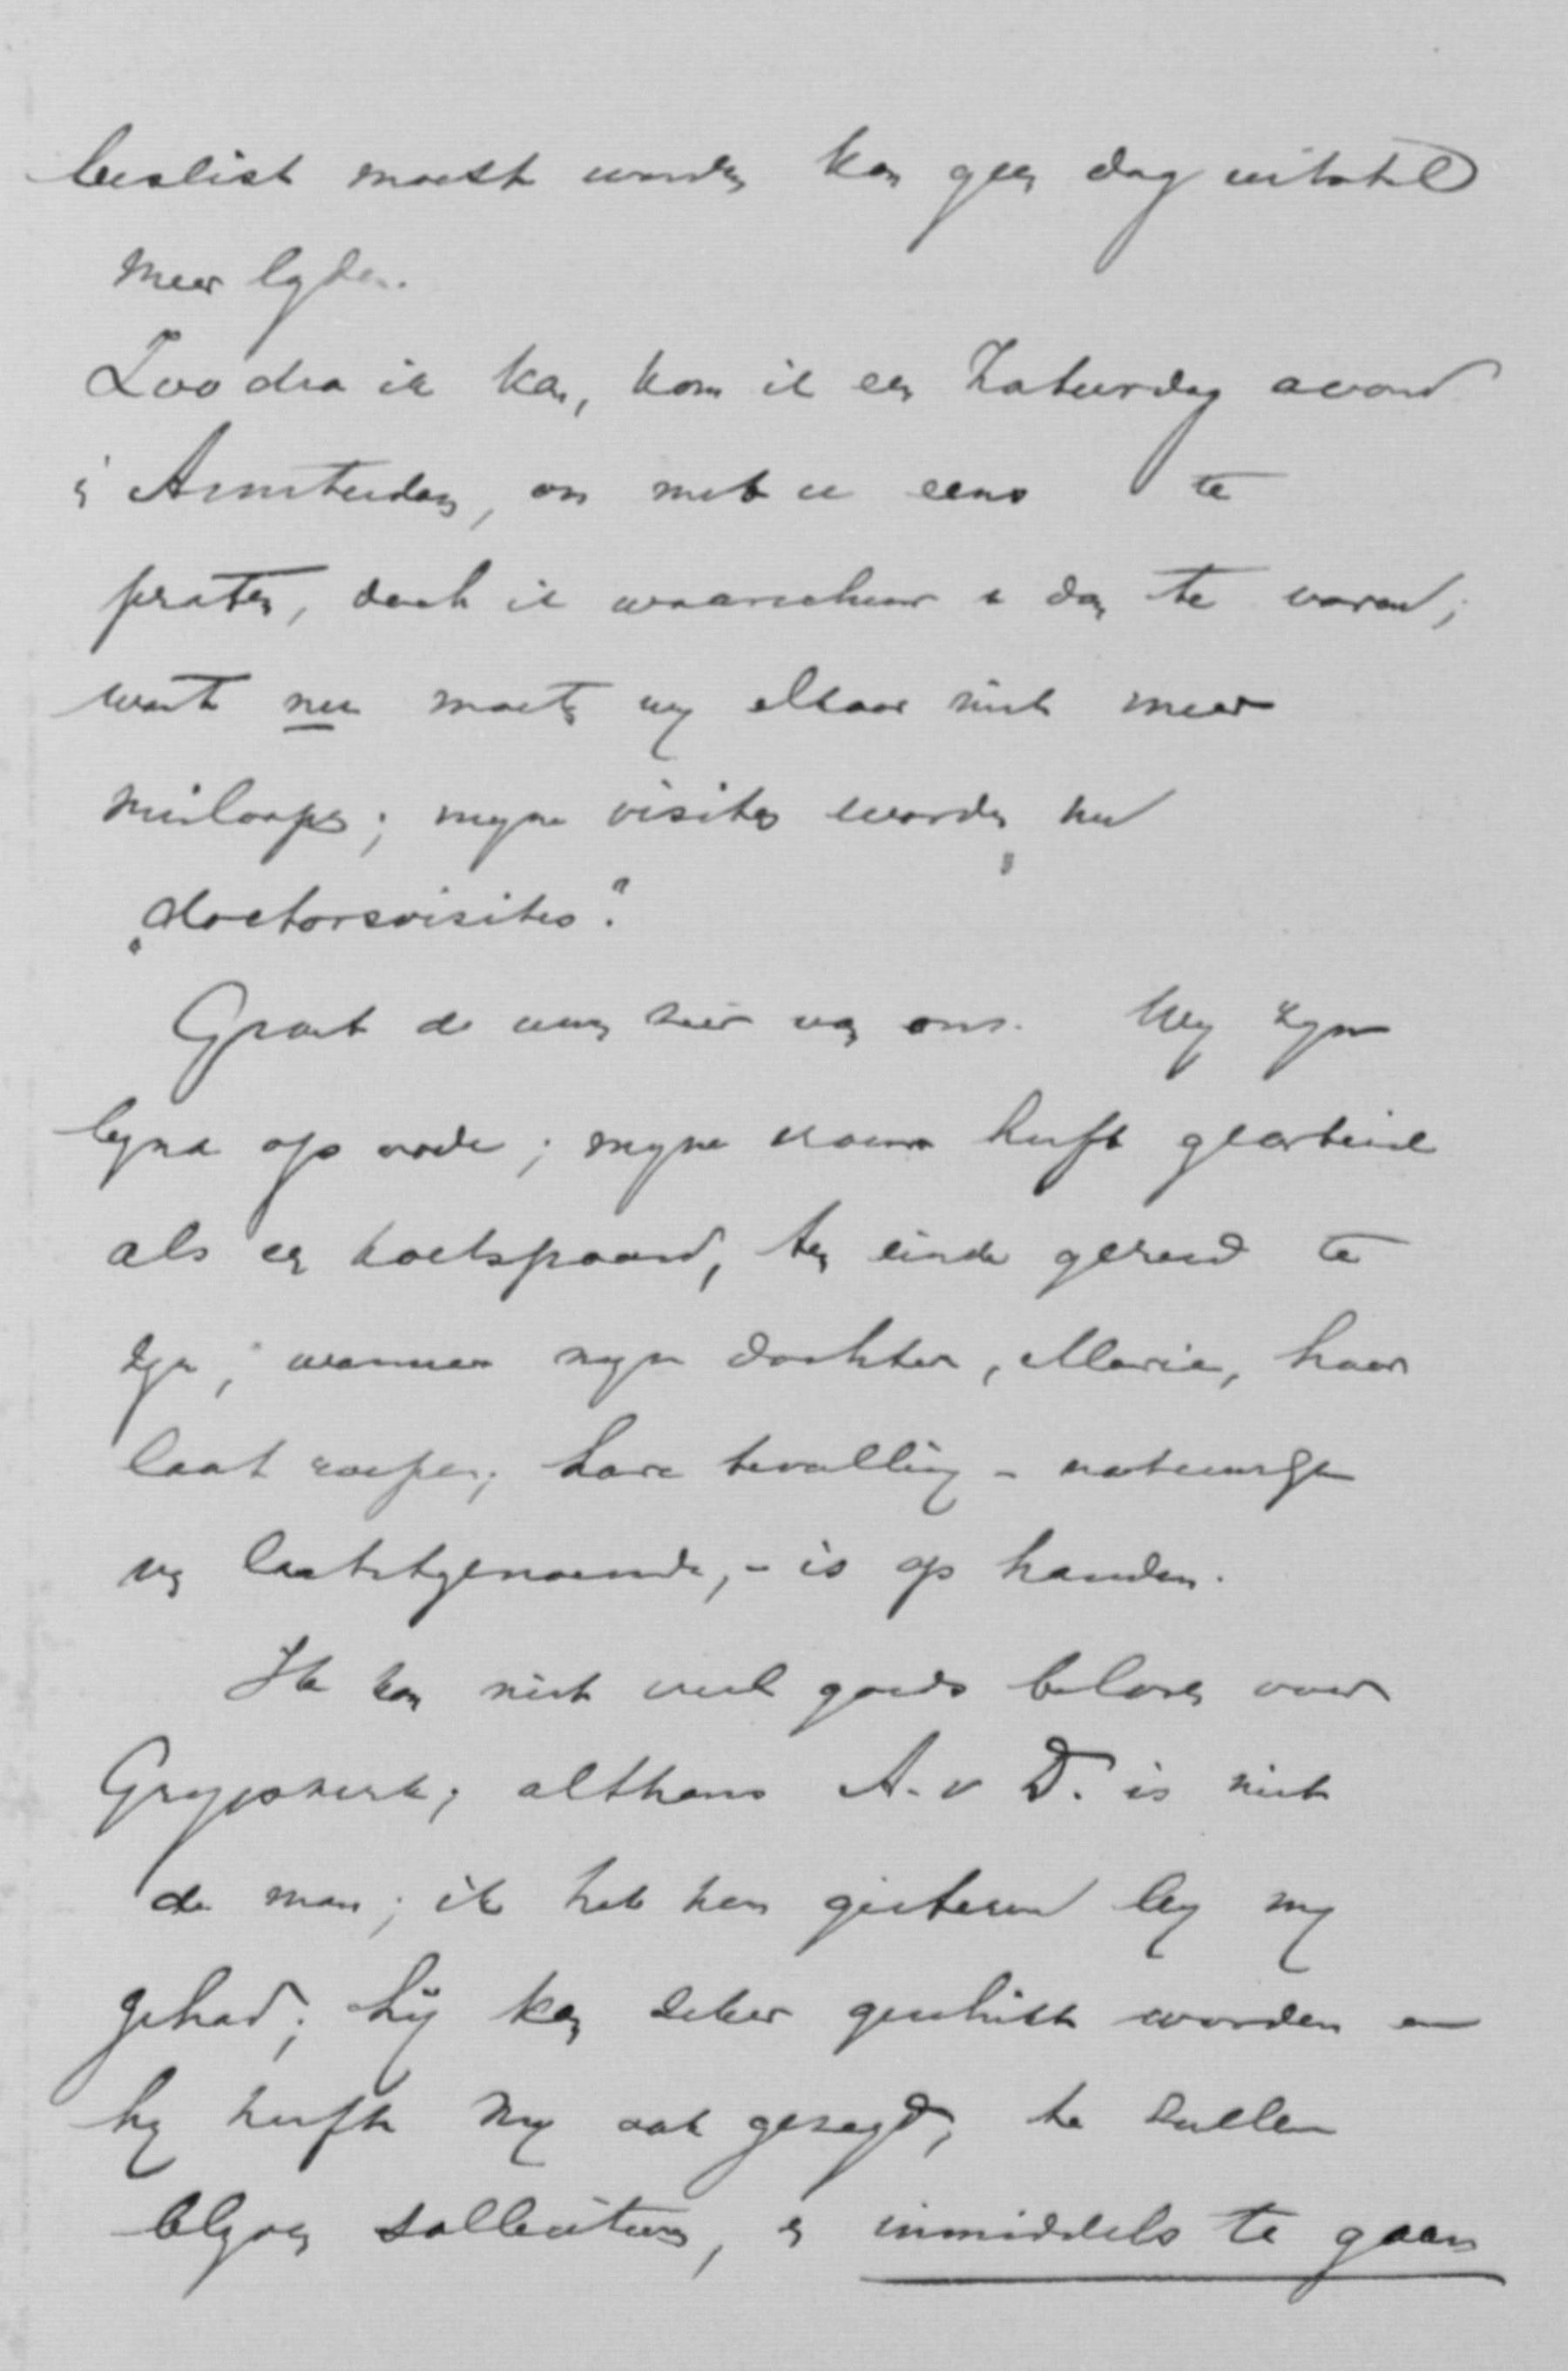 beslist moest worden kan geen dag uitstel
meer lyden.
Zoodra ik kan, kom ik een Zaturdag avond
in Amsterdam, om met u eens te
praten, doch ik waarschuw u dan te voren;
want nu moeten wy elkaar niet meer
mislopen; myne visites worden nu
„doctorsvisites".
Groet de uwen zeer van ons. Wy zyn
byna op orde; myne vrouw heeft gearbeid
als een koetspaard, ten einde gereed te
zyn, wanneer myn dochter, Marie, haar
laat roepen; hare bevalling - natuurlyk
van laatstgenoemde, - is op handen.
Ik kan niet veel goeds beloven over
Grypskerk; althans A. v D. is niet
de man; ik heb hem gisteren by my
gehad; hij kan zeker geschikt worden en
hy heeft my ook gezegd, te zullen
blyven solliciteren, en inmiddels te gaan